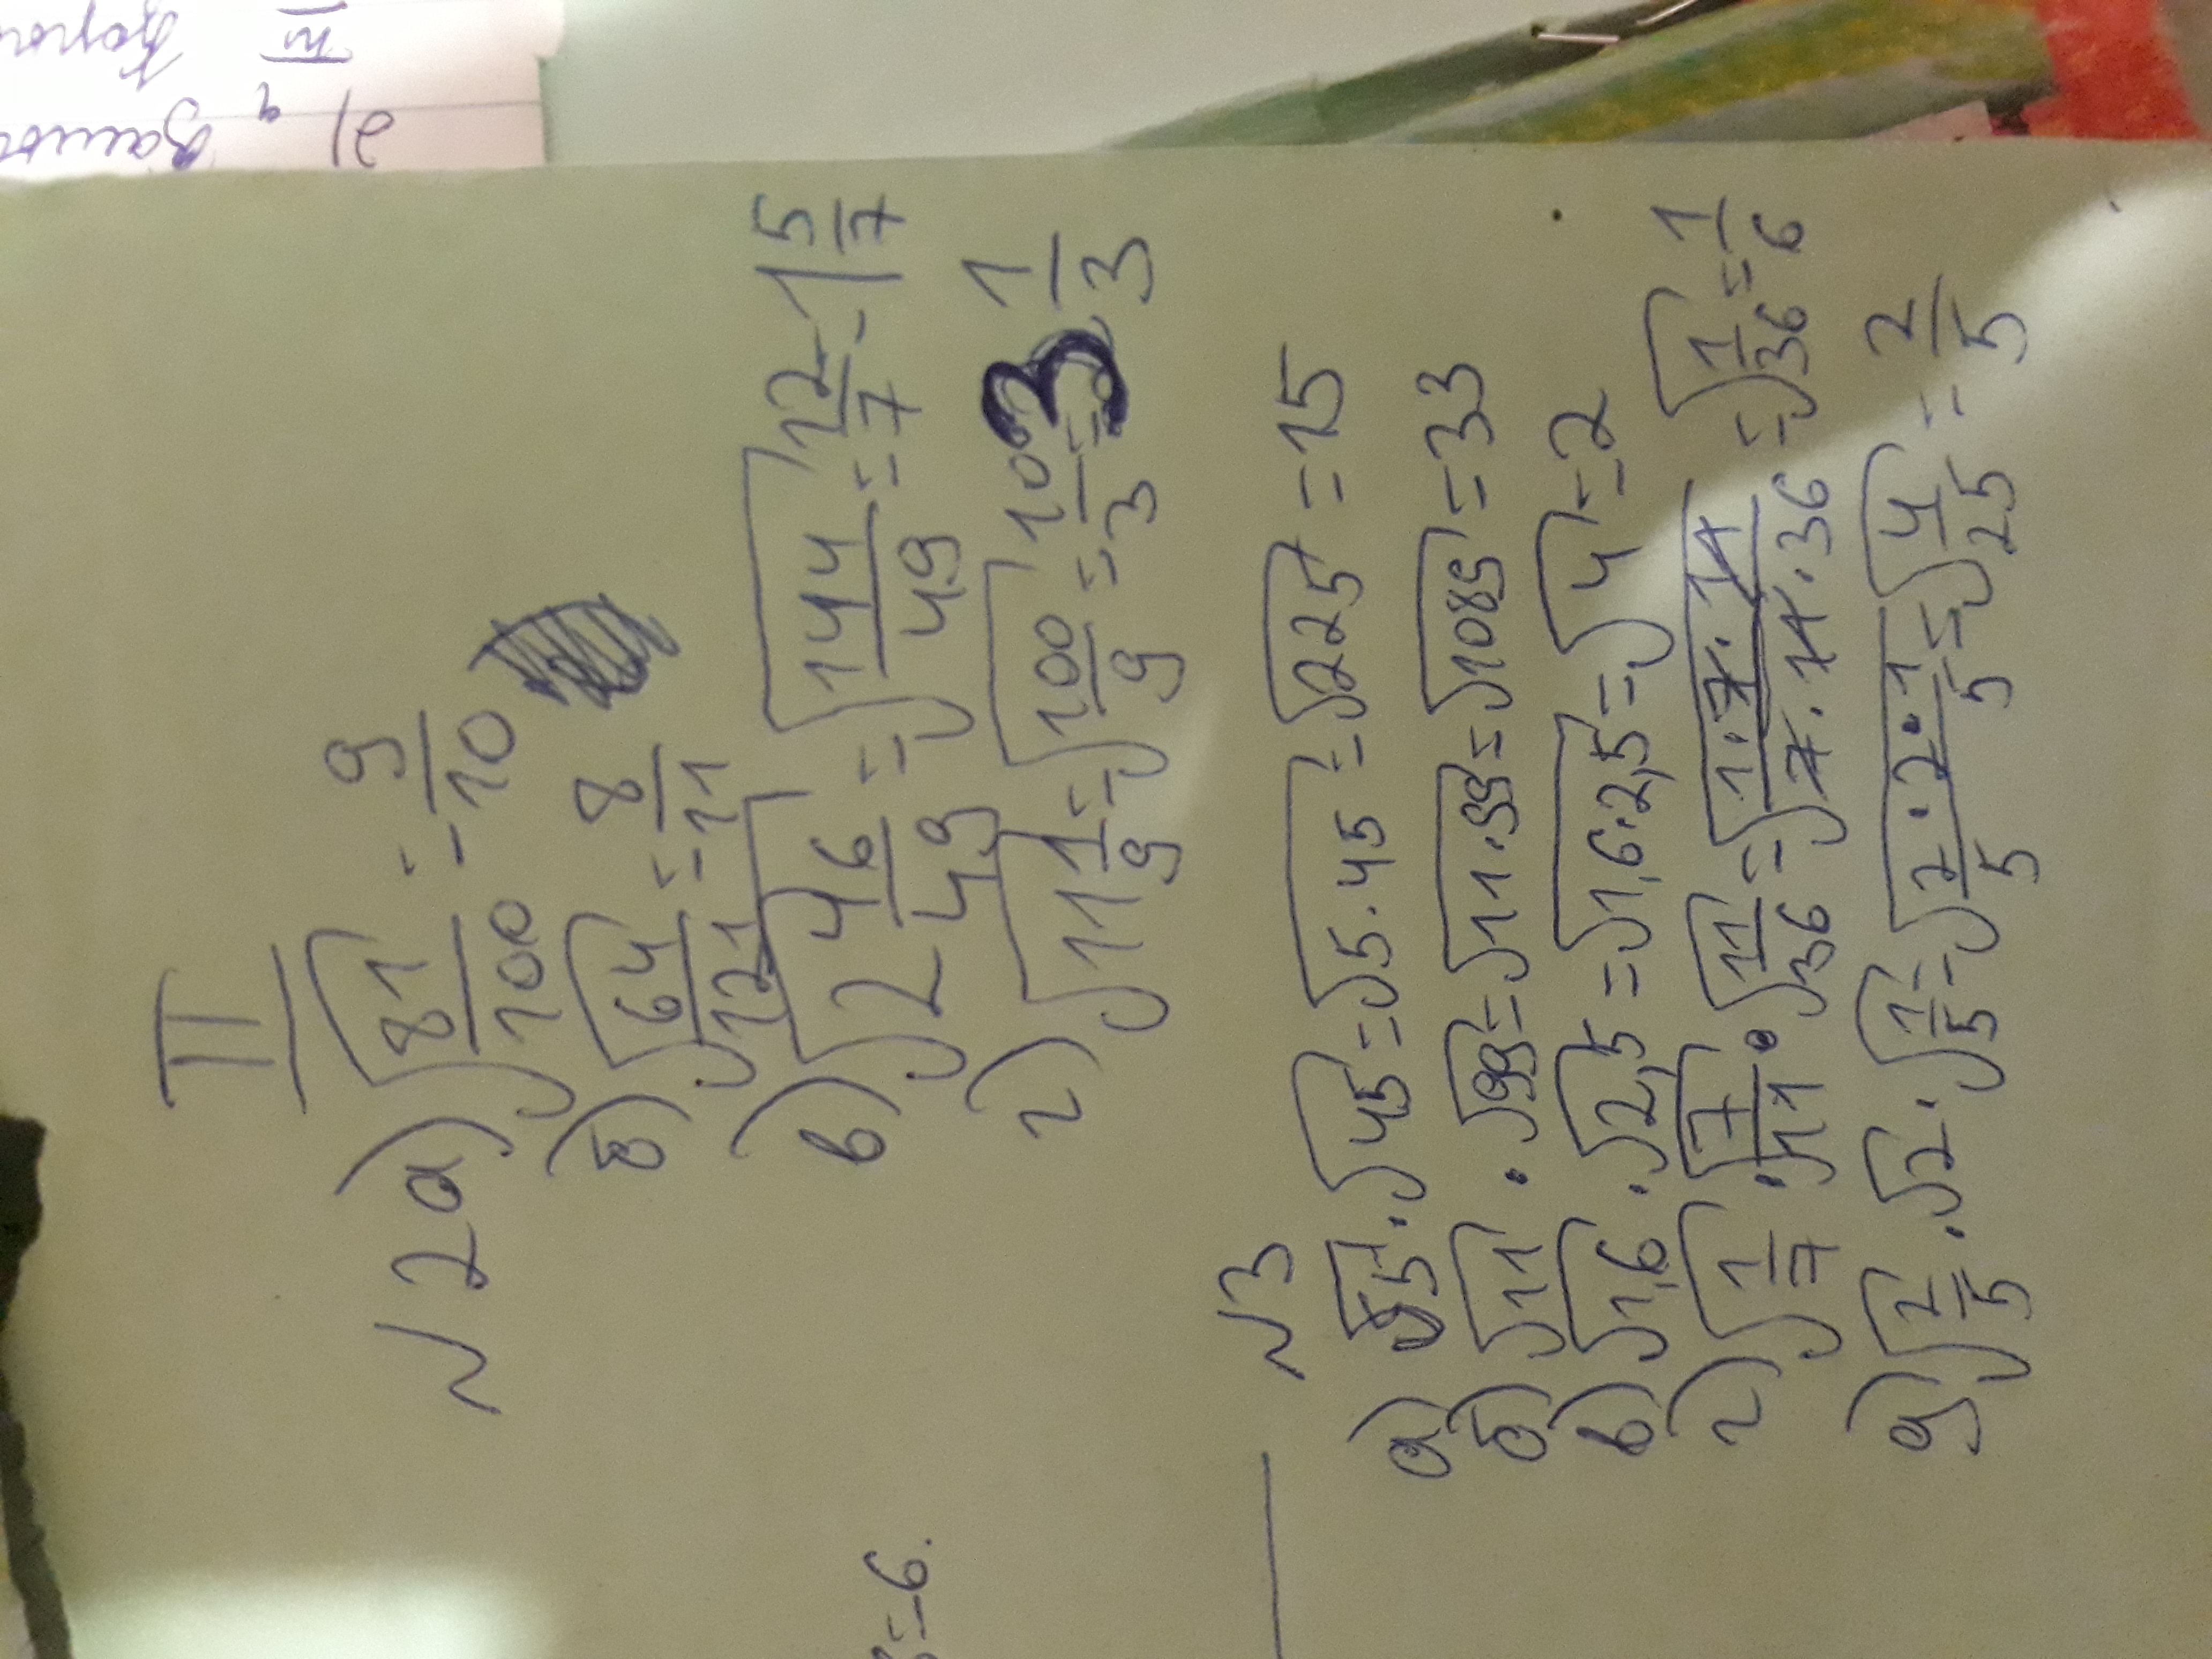 II
N2 а) √81/100 = 9/10
б) √64/121 = 8/11
в) √2 46/49 = √144/49 = 12/7 = 1 5/7
г) √11 1/9 = √100/9 = 10/3 = 3 1/3
N3
а) √5 · √45 = √5·45 = √225 = 15
б) √11 · √99 = √11·99 = √1089 = 33
в) √1,6 · √2,5 = √1,6·2,5 = √4 = 2
г) √1/7 · √7/11 · √11/36 = √1·7·11/7·11·36 = √1/36 = 1/6
д) √2/5 · √2 · √1/5 = √2·2·1/5 5 = √4/25 = 2/5
=6.
2)
III